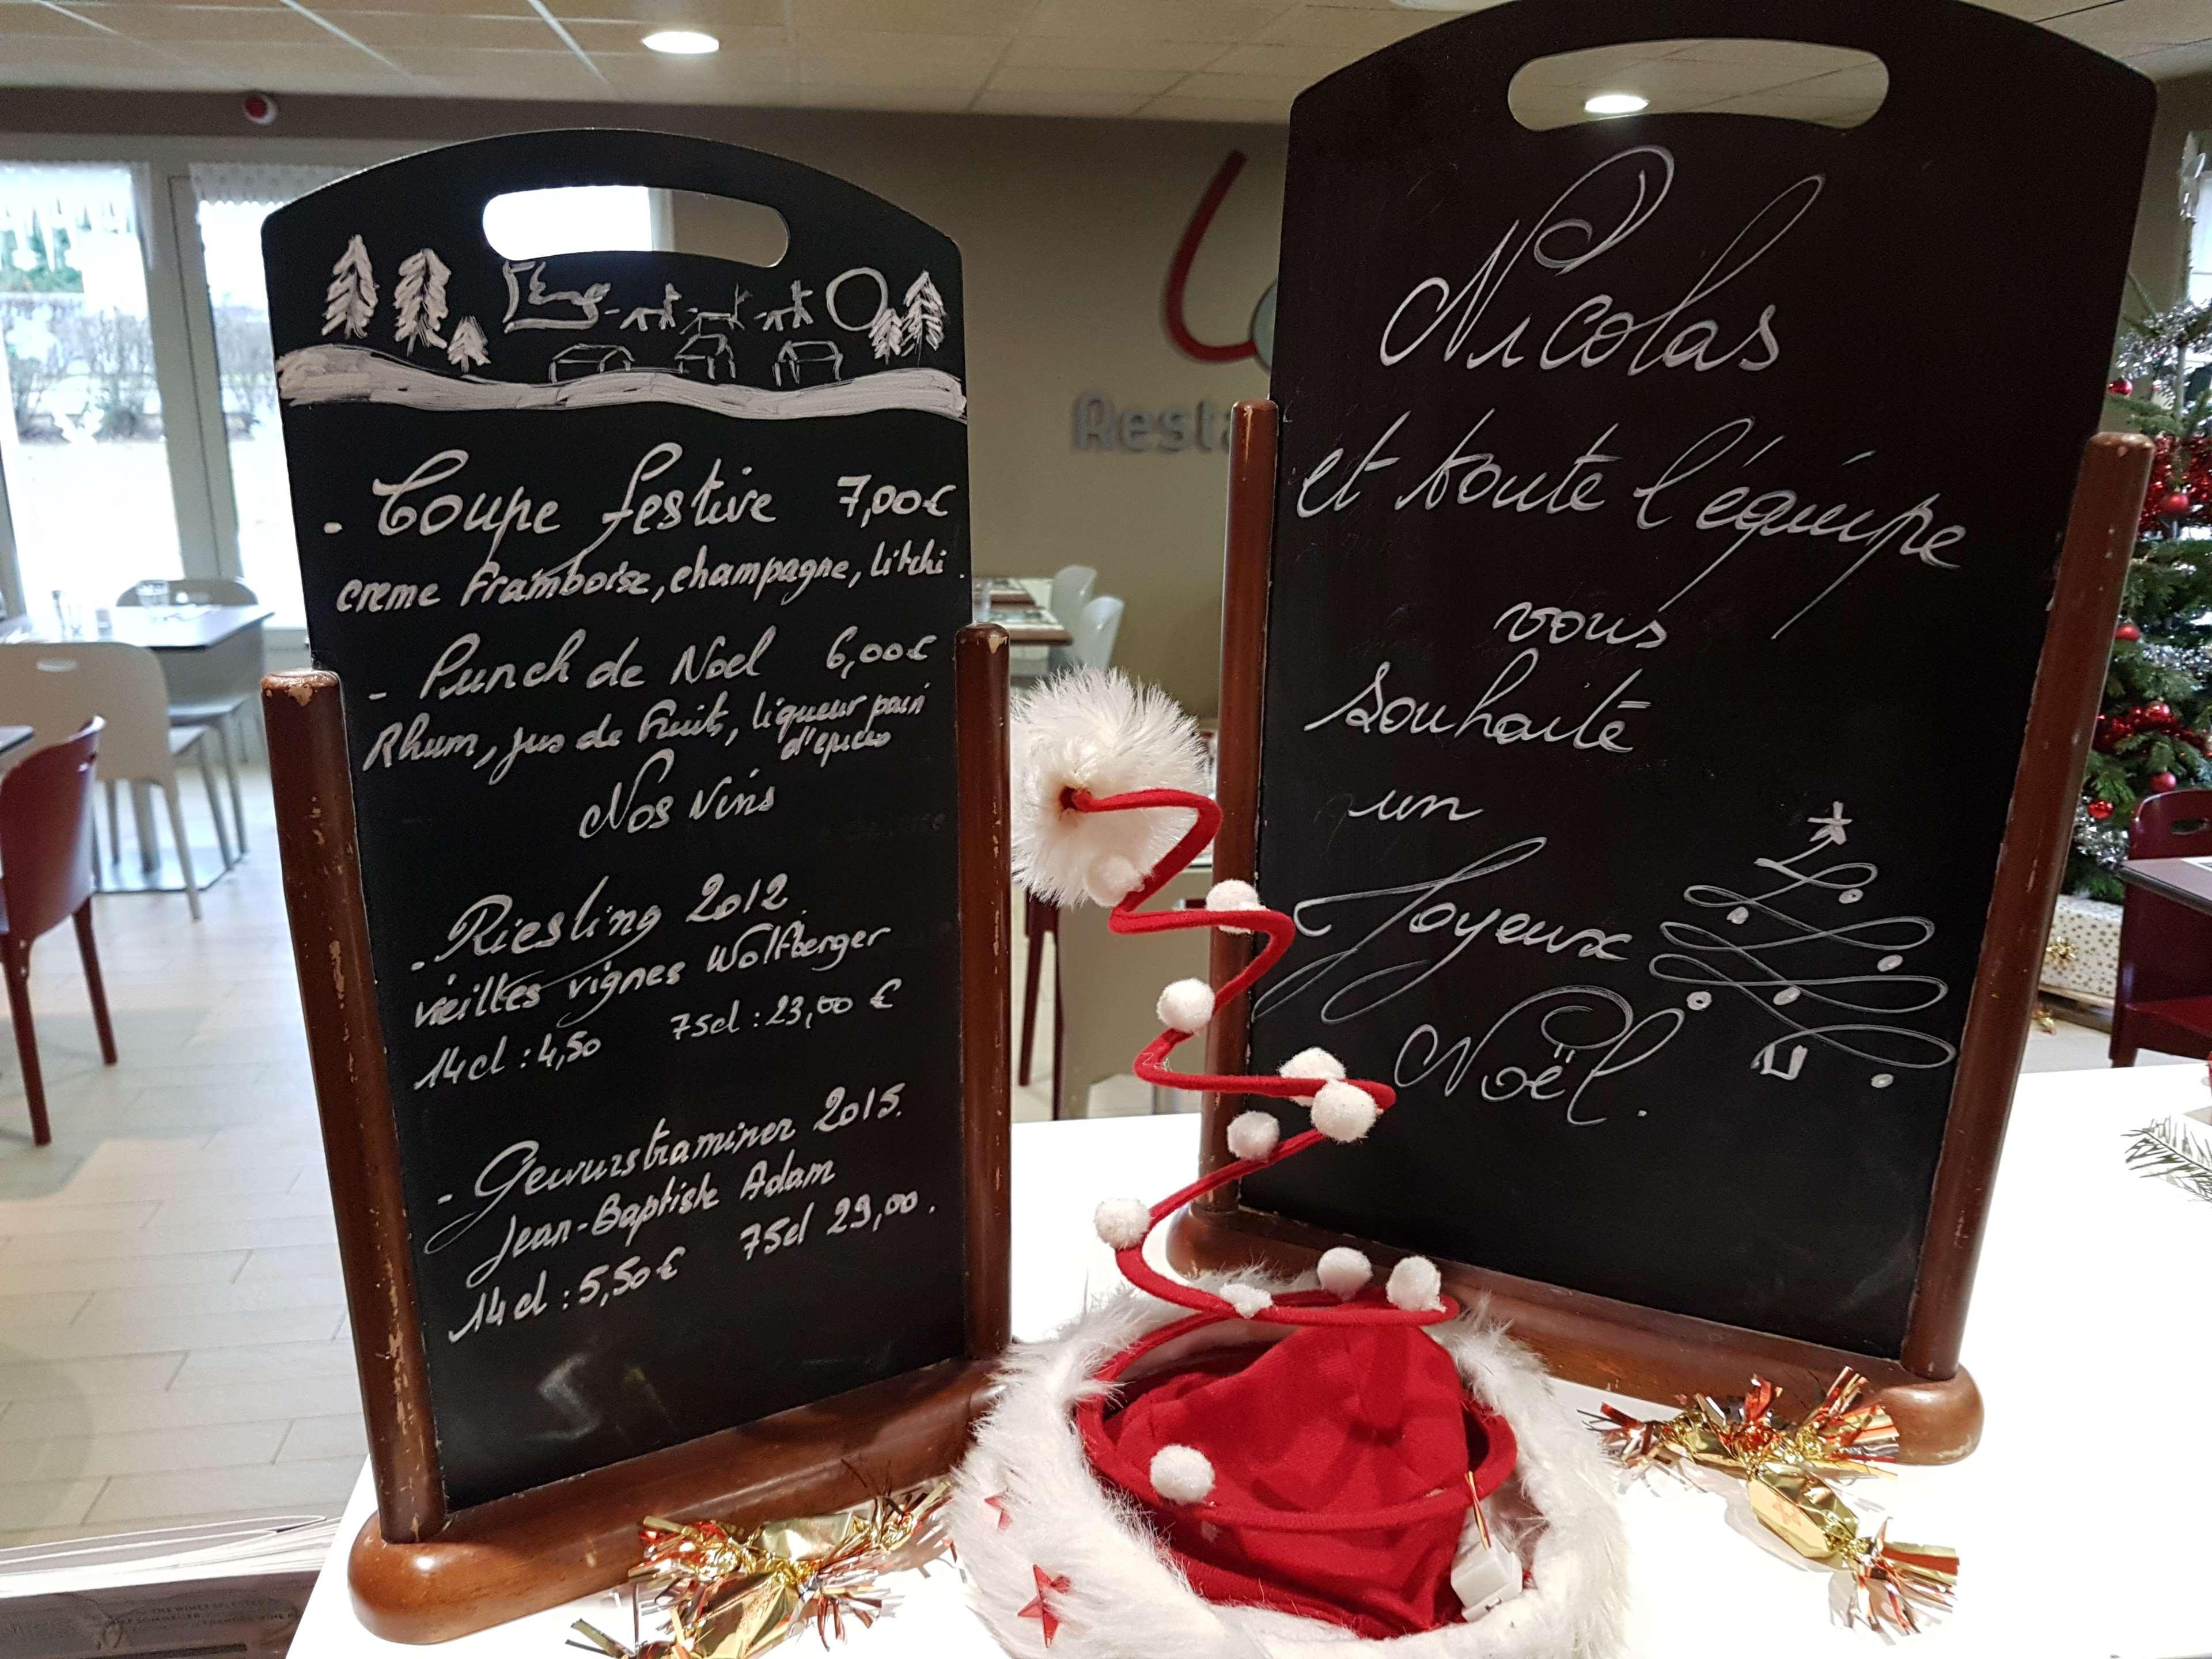 - Coupe festive 7,00€
creme Framboise, champagne, litchi.
- Punch de Noel 6,00€
Rhum, jus de Fruits, liqueur pain
d'epices
Nos vins
- Riesling 2012
vieilles vignes Wolfberger
14cl : 4,50 75cl : 23,00 €
- Gewurstraminer 2015.
Jean-Baptiste Adam
14cl : 5,50€ 75cl 29,00.
Resta
Nicolas
et toute l'équipe
vous
souhaite
un
Joyeux
Noël.